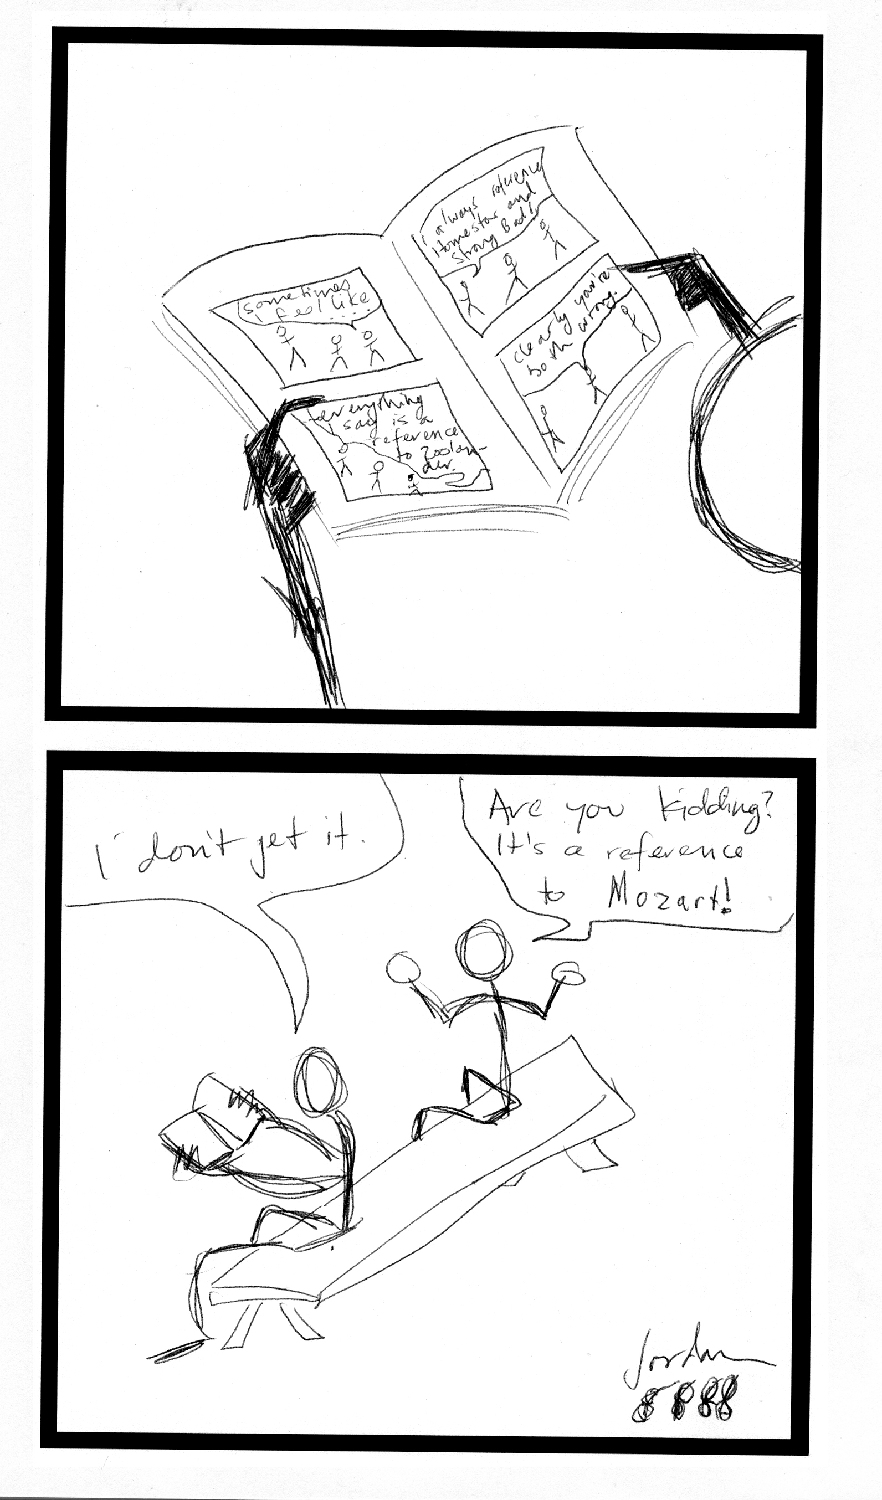 sometimes
I feel like
everything
I say is a
reference
to Zoolan-
der
I always reference
Homestar and
Strong Bad!
clearly you're
both wrong.
I don't get it.
Are you kidding?
It's a reference
to Mozart!
Jordan